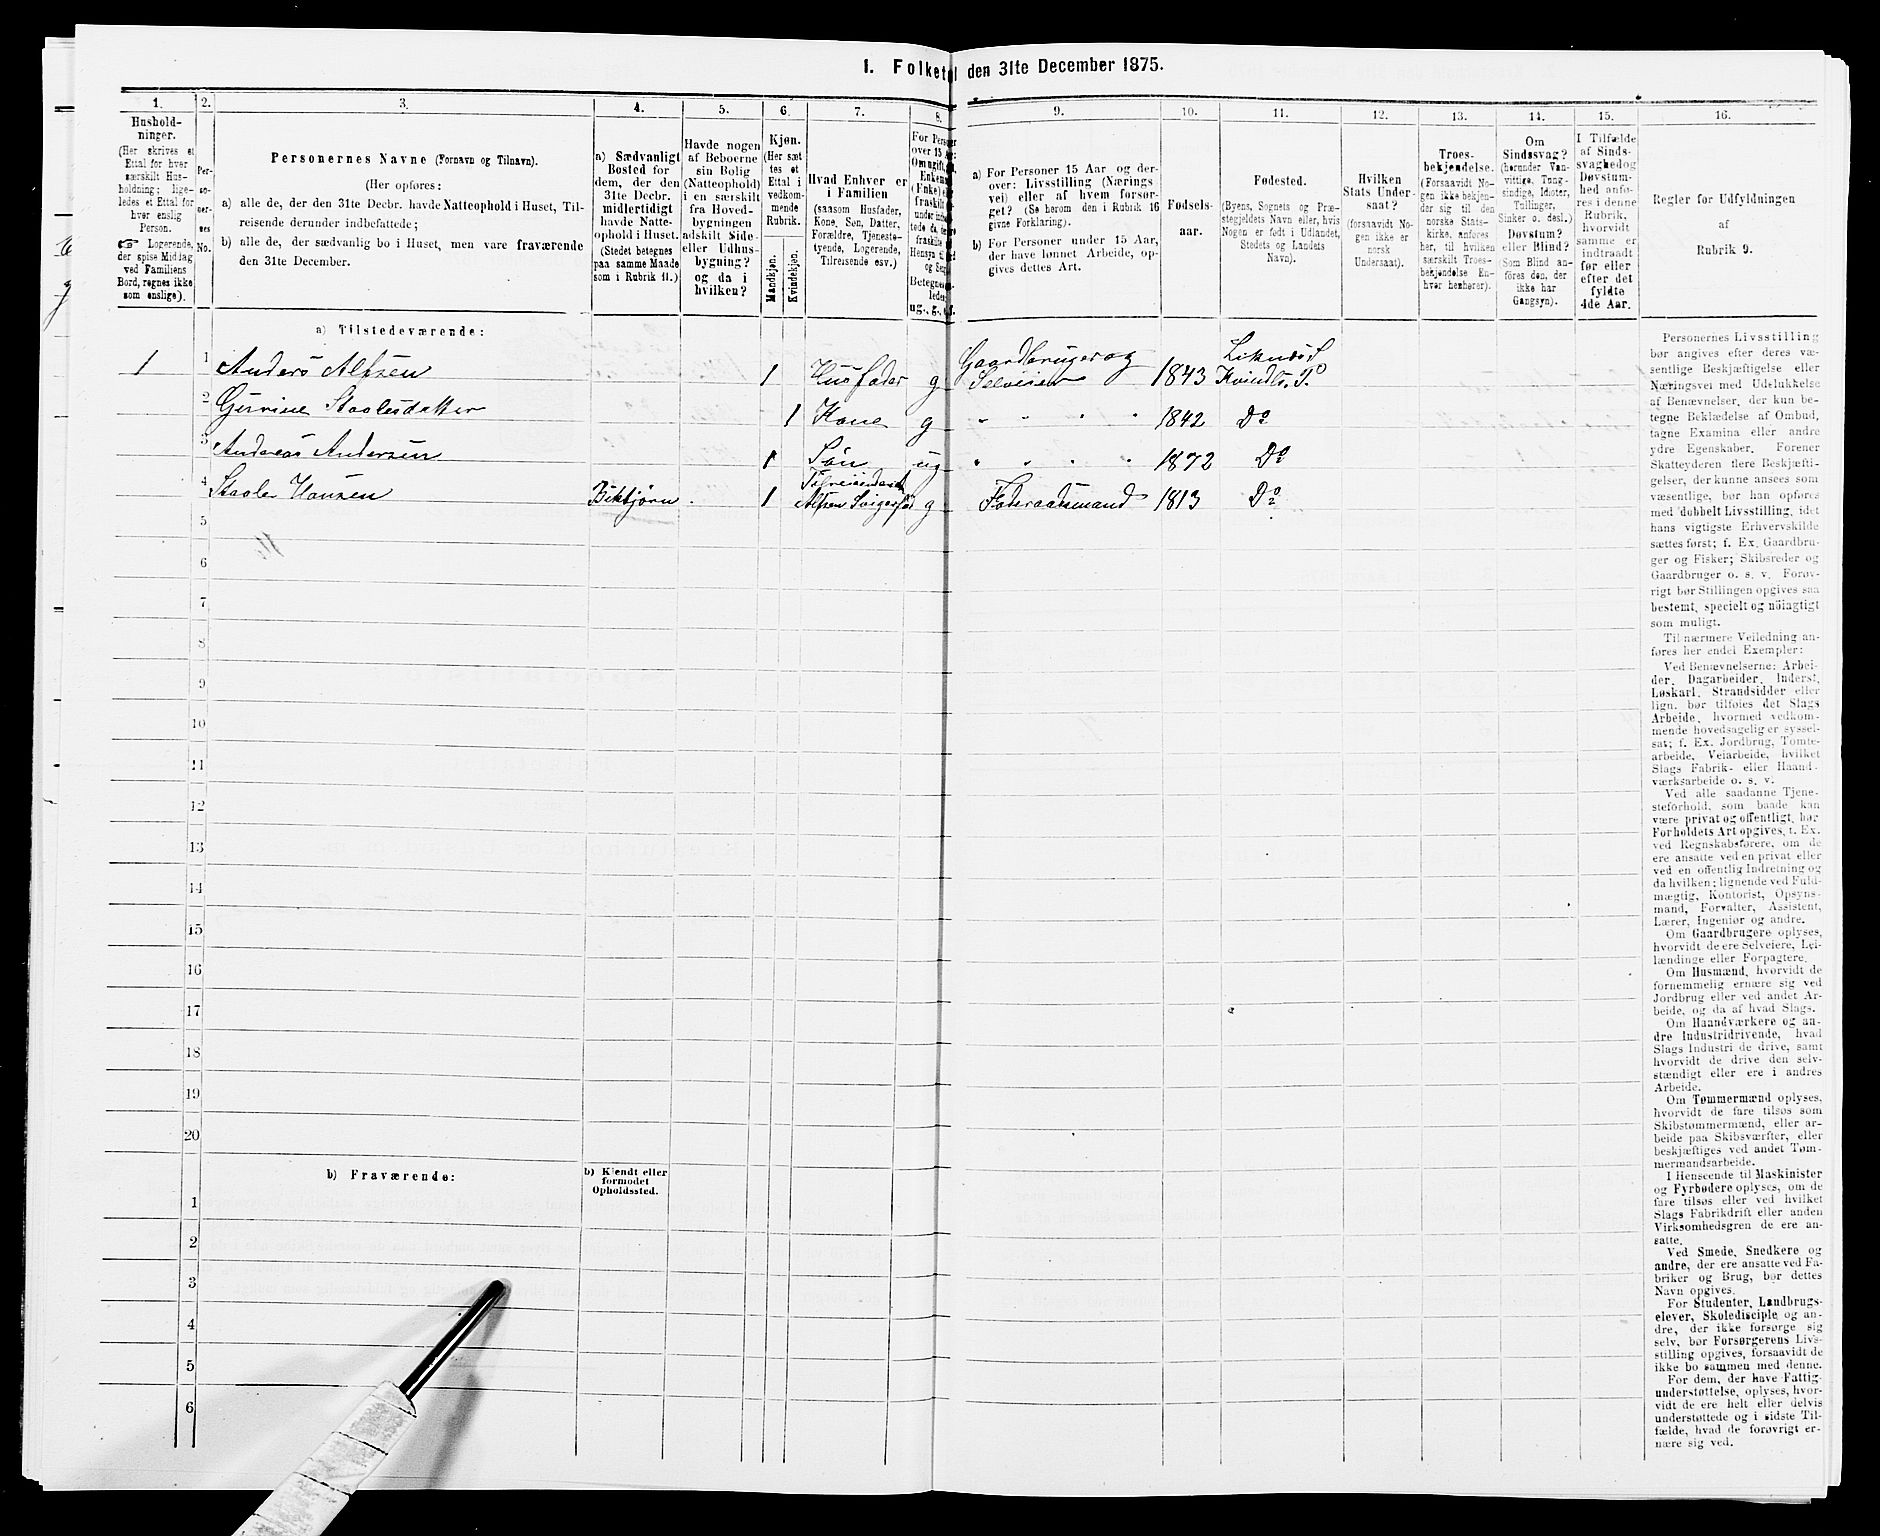 1. Folketal den 31te December 1875.
1.
Hushold-
ninger.
(Her skrives et
Ettal for hver
særskilt Hus-
holdning; lige-
ledes et Ettal for
hver enslig
Person.
☞ Logerende,
der spise Middag
ved Familiens
Bord, regnes ikke
som enslige).
2.
Per-
so-
ner-
nes
No.
3.
Personernes Navne (Fornavn og Tilnavn).
(Her opføres:
a) alle de, der den 31te Decbr. havde Natteophold i Huset, Til-
reisende derunder indbefattede;
b) alle de, der sædvanlig bo i Huset, men vare fraværende
den 31te December.
4.
a) Sædvanligt
Bosted for
dem, der den
31te Decbr.
midlertidigt
havde Natte-
ophold i Huset.
(Stedet betegnes
paa samme Maade
som i Rubrik 11.)
5.
Havde nogen
af Beboerne
sin Bolig
(Natteophold)
i en særskilt
fra Hoved-
bygningen
adskilt Side-
eller Udhus-
bygning?
og da i
hvilken?
6.
Kjøn.
(Her sæt
tes et
Ettal i
vedkom-
mende
Rubrik.
Mandkjøn.
Kvindekjøn.
7.
Hvad Enhver er
i Familien
(saasom Husfader,
Kone, Søn, Datter,
Forældre, Tjeneste-
tyende, Logerende,
Tilreisende osv.)
8.
ug., g.,
9.
a) For Personer 15 Aar og der-
over: Livsstilling (Nærings
vei) eller af hvem forsør-
get? (Se herom den i Rubrik 16
givne Forklaring).
b) For Personer under 15 Aar,
der have lønnet Arbeide, op-
gives dettes Art.
10.
Fødsels-
aar.
11.
Fødested.
(Byens, Sognets og Præ-
stegjeldets Navn eller, hvis
Nogen er født i Udlandet,
Stedets og Landets
Navn).
12.
Hvilken
Stats Under-
saat?
(forsaavidt No-
gen ikke er
norsk
Undersaat).
13.
Troes-
bekjendelse.
(Forsaavidt No-
gen ikke bekjen-
der sig til den
norske Stats-
kirke, anføres
her, til hvilken
særskilt Troes-
bekjendelse En-
hver henhører).
14.
Om
Sindssvag?
(herunder Van-
vittige, Tung-
sindige, Idioter,
Tullinger,
Sinker o. desl.)
Døvstum?
eller Blind?
(Som Blind an-
føres den, der
ikke har
Gangsyn).
15.
I Tilfælde
af Sinds-
svaghed og
Døvstum-
hed anfø-
res i denne
Rubrik,
hvorvidt
samme er
indtraadt
før eller
efter det
fyldte
4de Aar.
16.
Regler for Udfyldningen
af
Rubrik 9.
a) Tilstedeværende:
1 1 Anders Alfsen 1 Husfader g Gaardbruger og Selveier 1843 Liknæs S Kvindh. P.
2 Gurine Staalesdatter 1 Kone g " " " " 1842 Do
3 Andreas Andersen 1 Søn ug " " " " 1872 Do
4 Staale Hansen 1 g Føderaadsmand 1813 Do
5
6
7
8
9
10
11
12
13
14
15
16
17
18
19
20
b) Fraværende:
b) Kjendt eller
formodet
Opholdssted.
1
2
3
4
5
6
Personernes Livsstilling
bør angives efter deres væ-
sentlige Beskjæftigelse eller
Næringsvei med Udelukkelse
af Benævnelser, der kun be-
tegne Beklædelse af Ombud,
tagne Examina eller andre
ydre Egenskaber. Forener
Skatteyderen flere Beskjæfti-
gelser, der kunne ansees som
væsentlige, bør han opføres
med dobbelt Livsstilling, idet
hans vigtigste Erhvervskilde
sættes først; f. Ex. Gaardbru-
ger og Fisker; Skibsreder og
Gaardbruger o. s. v. Forøv-
rigt bør Stillingen opgives saa
bestemt, specielt og nøiagtigt
som muligt.
Til nærmere Veiledning an-
føres her endel Exempler:
Ved Benævnelserne: Arbei-
der, Dagarbeider, Inderst,
Løskarl, Strandsidder eller
lign. bør tilføies det Slags
Arbeide, hvormed vedkom-
mende hovedsagelig er syssel-
sat; f. Ex. Jordbrug, Tomte-
arbeide, Veiarbeide, hvilket
Slags Fabrik- eller Haand-
værksarbeide o. s. v.
Ved alle saadanne Tjene-
steforhold, som baade kan
være privat og offentligt, bør
Forholdets Art opgives, f. Ex.
ved Regnskabsførere, om de
ere ansatte ved en privat eller
ved en offentlig Indretning og
da hvilken; lignende ved Fuld-
mægtig, Kontorist, Opsyns-
mand, Forvalter, Assistent,
Lærer, Ingeniør og andre.
Om Gaardbrugere oplyses,
hvorvidt de ere Selveiere, Lei-
lændinge eller Forpagtere.
Om Husmænd, hvorvidt de
fornemmelig ernære sig ved
Jordbrug eller ved andet Ar-
beide, og da af hvad Slags.
Om Haandværkere og an-
dre Industridrivende, hvad
Slags Industri de drive, samt
hvorvidt de drive den selv-
stændigt eller ere i andres
Arbeide.
Om Tømmermænd oplyses,
hvorvidt de fare tilsøs som
Skibstømmermænd, eller ar-
beide paa Skibsværfter, eller
beskjæftiges ved andet Tøm-
mermandsarbeide.
I Henseende til Maskinister
og Fyrbødere oplyses, om de
fare tilsøs eller ved hvilket
Slags Fabrikdrift eller anden
Virksomhedsgren de ere an-
satte.
Ved Smede, Snedkere og
andre, der ere ansatte ved Fa-
briker og Brug, bør dettes
Navn opgives.
For Studenter, Landbrugs-
elever, Skoledisciple og an-
dre, der ikke forsørge sig
selv, bør Forsørgerens Livs-
stilling opgives, forsaavidt de
ikke bo sammen med denne.
For dem, der have Fattig-
understøttelse, oplyses, hvor-
vidt de ere helt eller delvis
understøttede og i sidste Til-
fælde, hvad de forøvrigt er-
nære sig ved.